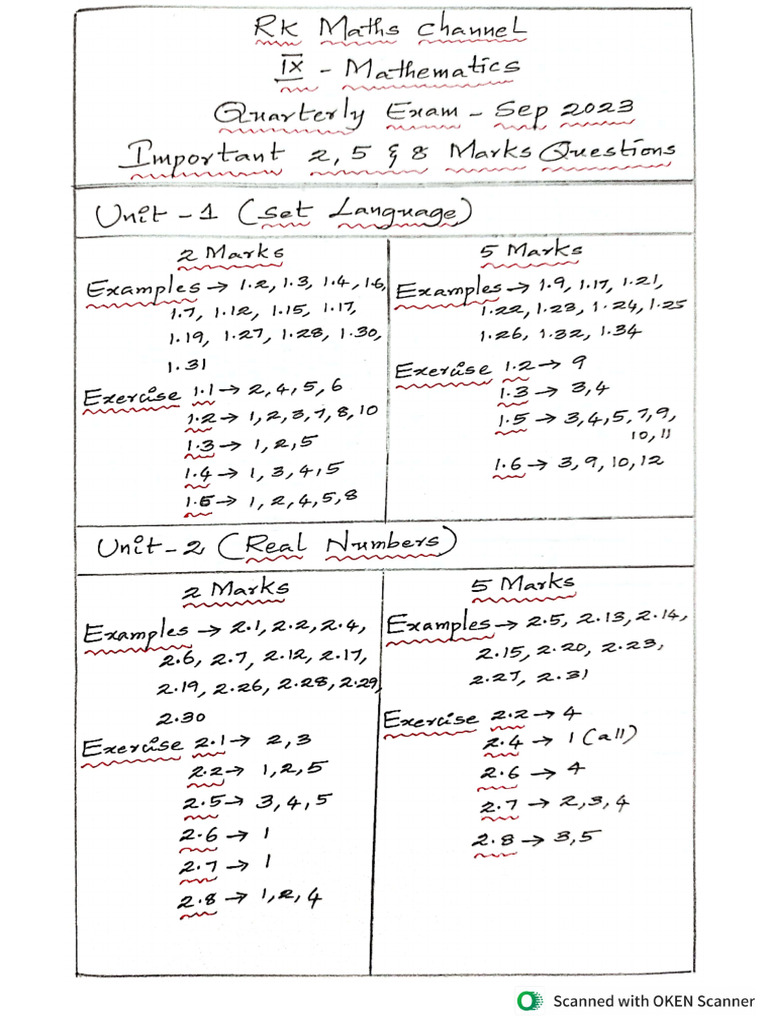 RK Maths Channel
IX - Mathematics
Quarterly Exam - Sep 2023
Important 2, 5 & 8 Marks Questions
Unit - 1 (Set Language)
2 Marks
Examples → 1.2, 1.3, 1.4, 1.6,
1.7, 1.12, 1.15, 1.17,
1.19, 1.27, 1.28, 1.30,
1.31
Exercise 1.1 → 2, 4, 5, 6
1.2 → 1, 2, 3, 7, 8, 10
1.3 → 1, 2, 5
1.4 → 1, 3, 4, 5
1.5 → 1, 2, 4, 5, 8
5 Marks
Examples → 1.9, 1.17, 1.21,
1.22, 1.23, 1.24, 1.25
1.26, 1.32, 1.34
Exercise 1.2 → 9
1.3 → 3, 4
1.5 → 3, 4, 5, 7, 9,
10, 11
1.6 → 3, 9, 10, 12
Unit - 2 (Real Numbers)
2 Marks
Examples → 2.1, 2.2, 2.4,
2.6, 2.7, 2.12, 2.17,
2.19, 2.26, 2.28, 2.29,
2.30
Exercise 2.1 → 2, 3
2.2 → 1, 2, 5
2.5 → 3, 4, 5
2.6 → 1
2.7 → 1
2.8 → 1, 2, 4
5 Marks
Examples → 2.5, 2.13, 2.14,
2.15, 2.20, 2.23,
2.27, 2.31
Exercise 2.2 → 4
2.4 → 1 (all)
2.6 → 4
2.7 → 2, 3, 4
2.8 → 3, 5
Scanned with OKEN Scanner